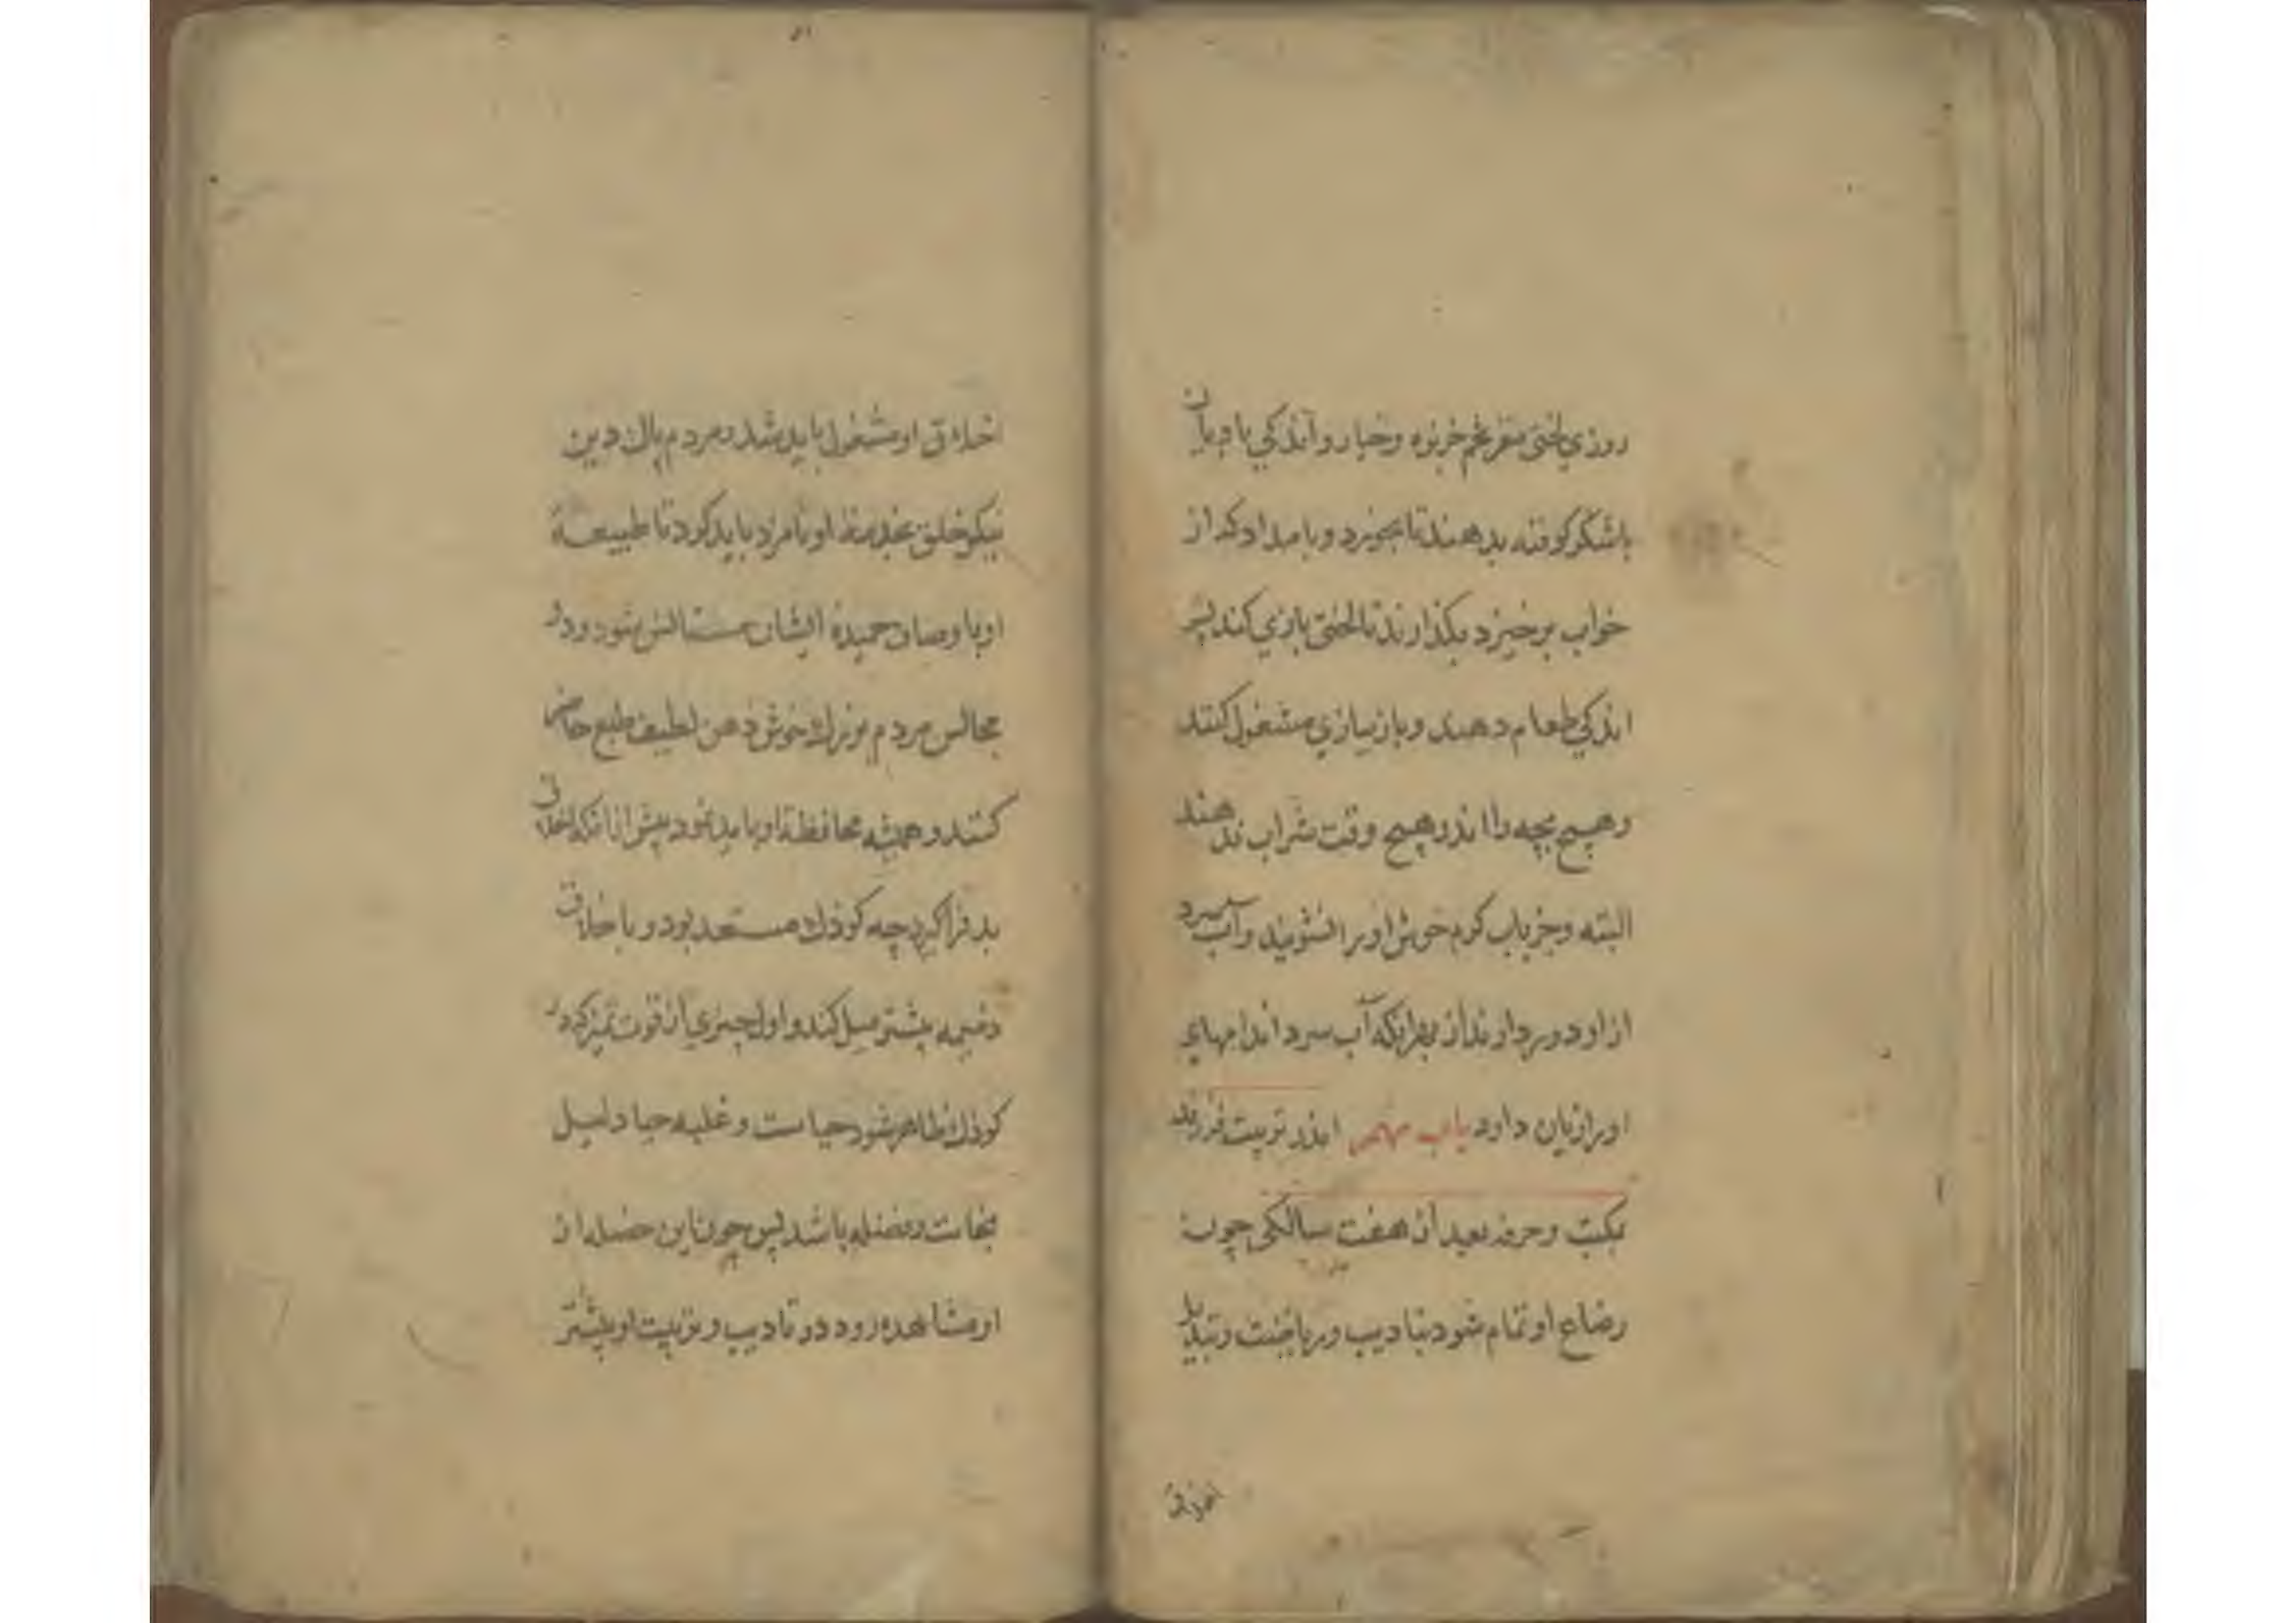 روزي لختی مغز تخم خربزه وخیار و اندکی بادیان
باشکر کوفته بدهند تا بخورد و بامداد که از
خواب برخیزد بگذارند تا لختی بازي کند پس
اندکی طعام دهند و باز ببازي مشغول کنند
وهیچ بچه را اندر هیچ وقت شراب ندهند
البته وجز باب کرم خوش او را نشویند وآب سرد
از او دور دارند از بهر انکه آب سرد اندامهای
اورا زیان دارد باب اندر تربیت فرزند
بکتب وحرفه بعد از هفت سالکی چون
رضاع او تمام شود بتادیب وریاضت وتبدیل
اخلاق
اخلاق او مشغول باید شد ومردم پاك دین
نیکو خلق بخدمة او نامزد باید کرد تا طبیعة
او با وصاف حمیدۀ ایشان مستانس شود ودر
مجالس مردم بزرك خوش ذهن لطیف طبع حاضر
کنند و همیشه محافظة او باید نمود پیش از انکه اخلاق
بد فراکیرد چه کوذك مستعد بود و باخلاق
ذمیمه بیشتر میل کند و اول چیزي از قوت تمیز که در
کوذك ظاهر شود حیاست و غلبه حیا دلیل
نجابت و فضیله باشد پس چون این خصله از
او مشاهده رود در تادیب و تربیت او بیشتر